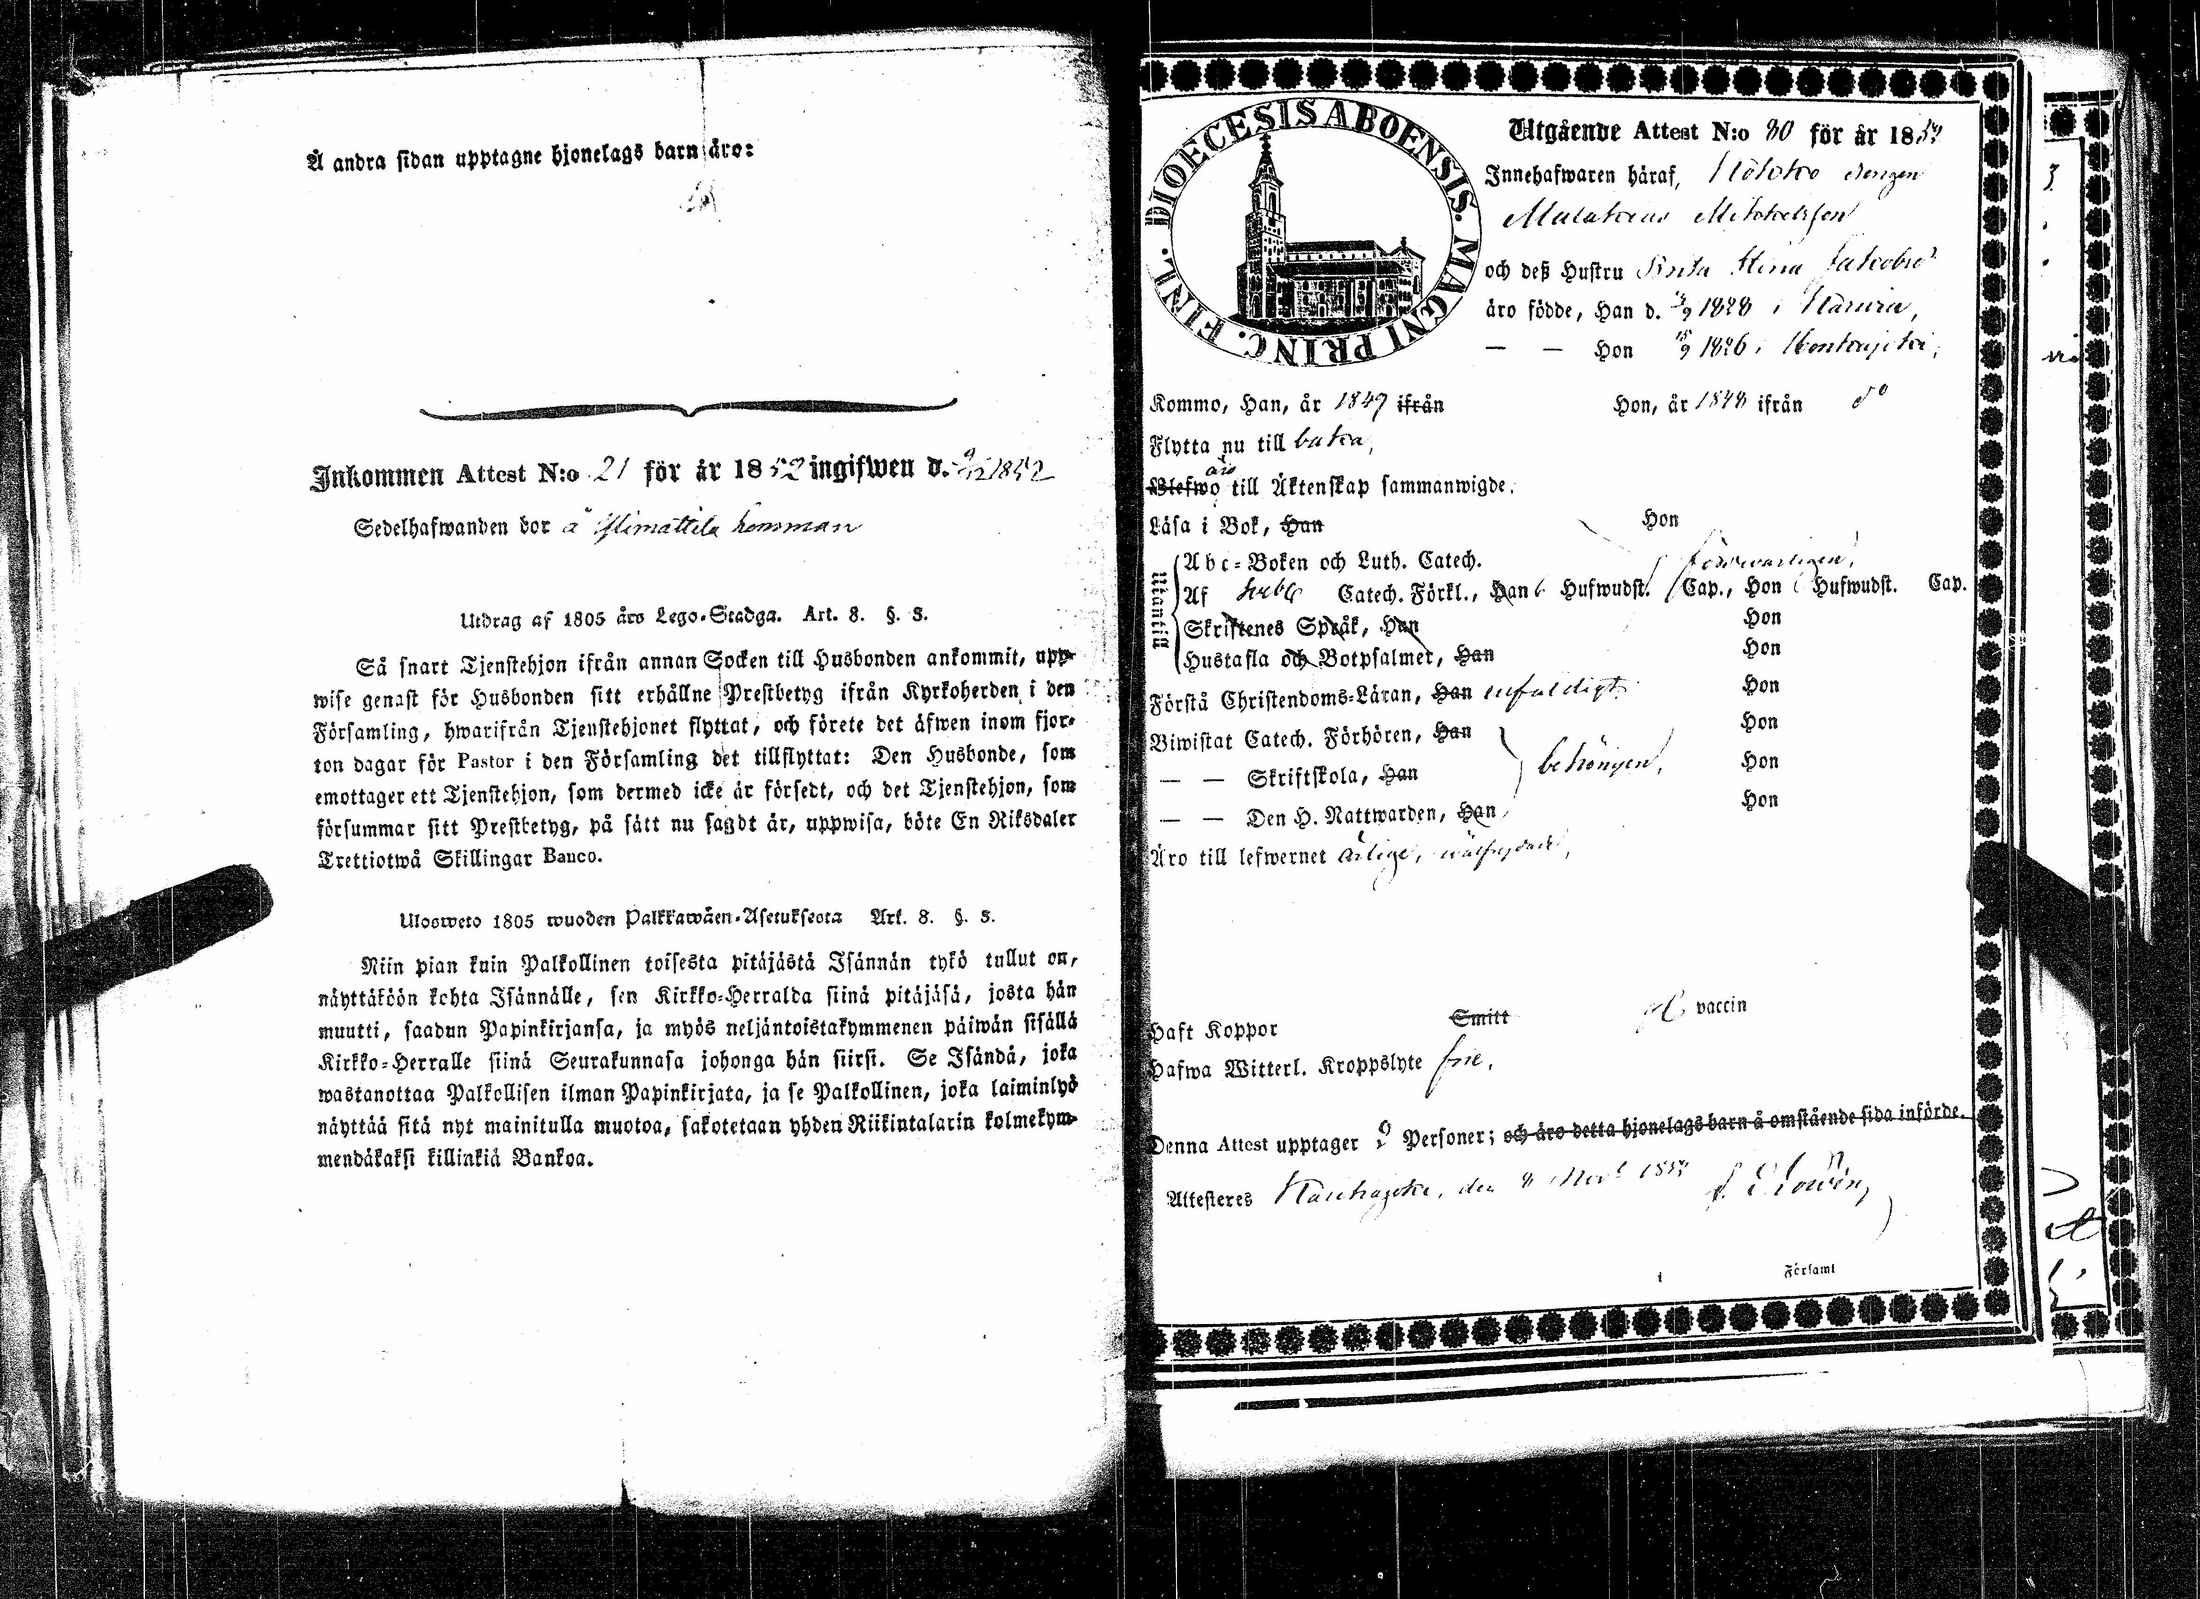 Å andra sidan upptagne hjonelags barn äro:
Inkommen Attest N:o 21 för år 1852 ingifwen d. 9/12 1852
Sedelhafwanden bor å hemman
Utdrag af 1805 års Lego-Stadga. Art. 8. §. 3.
Så snart Tjenstehjon ifrån annan Socken till Husbonden ankommit, upp-
wise genast för Husbonden sitt erhållne Prestbetyg ifrån Kyrkoherden i den
Församling, hwarifrån Tjenstehjonet flyttat, och förete det äfwen inom fjor-
ton dagar för Pastor i den Församling det tillflyttat: Den Husbonde, som
emottager ett Tjenstehjon, som dermed icke är försedt, och det Tjenstehjon, som
försummar sitt Prestbetyg, på sätt nu sagdt är, uppwisa, böte En Riksdaler
Trettiotwå Skillingar Banco.
Ulosweto 1805 wuoden Palkkawäen-Asetuksesta Art. 8. §. 3.
Niin pian kuin Palkollinen toisesta pitäjästä Isännän tykö tullut on,
näyttäköön kohta Isännälle, sen Kirkko-Herralda siinä pitäjäsä, josta hän
muutti, saadun Papinkirjansa, ja myös neljäntoistakymmenen päiwän sisällä
Kirkko-Herralle siinä Seurakunnasa johonga hän siirsi. Se Isändä, joka
wastanottaa Palkollisen ilman Papinkirjata, ja se Palkollinen, joka laiminlyö
näyttää sitä nyt mainitulla muotoa, sakotetaan yhden Riikintalarin kolmekym-
mendäkaksi killinkiä Bankoa.
DIOECESIS ABOENSIS. MAGNI PRINC. FINL.
Utgående Attest N:o 80 för år 1852
Innehafwaren häraf, drengen
Mikkelsson
och deß Hustru Stina Jakobsd
äro födde, Han d. 1828 i
— — Hon 15/9 1826 i
Kommo, Han, år 1849 ifrån Hon, år 1848 ifrån do
Flytta nu till
Blefwo äro till Äktenskap sammanwigde.
Läsa i Bok, Han Hon
Utantill
Abc-Boken och Luth. Catech. försvarligen,
Af Catech. Förkl., Han 6 Hufwudst. Cap., Hon 6 Hufwudst. Cap.
Skriftenes Språk, Han Hon
Hustafla och Botpsalmer, Han Hon
Förstå Christendoms-Läran, Han enfaldigt, Hon
Biwistat Catech. Förhören, Han Hon
— — Skriftskola, Han behörigen, Hon
— — Den H. Nattwarden, Han Hon
Äro till lefwernet ärlige, wälfrejdade,
Haft Koppor Smitt vaccin
Hafwa Witterl. Kroppslyte frie.
Denna Attest upptager 2 Personer; och äro detta hjonelags barn å omstående sida införde.
Attesteres den 8 Novb 1852
i Församl